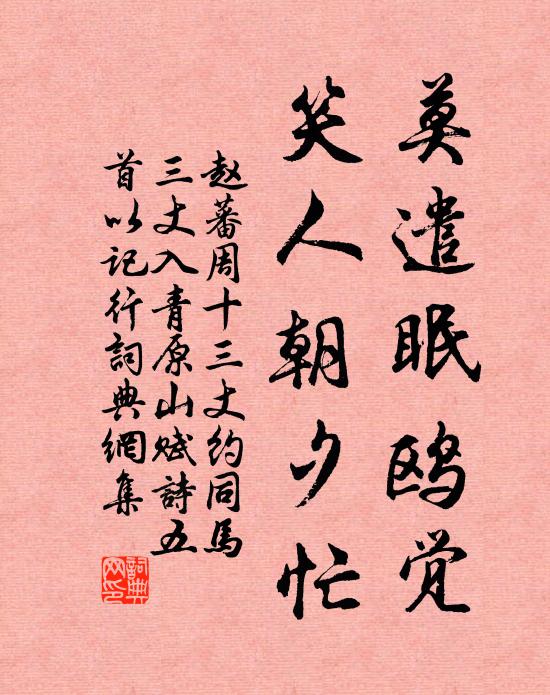 莫遣眠鸥觉
笑人朝夕忙
赵蕃周十三丈约同馬
三丈入青原山赋詩五
首以记行詞典網集
詞典
网印